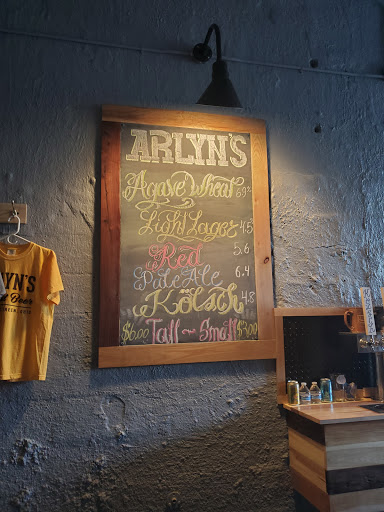 ARLYN'S
Agave Wheat 6.9%
Light Lager 4.5
Red 5.6
Pale Ale 6.4
Kölsch 4.8
$6.00 Tall ~ Small $3.00
LYN'S
Beer